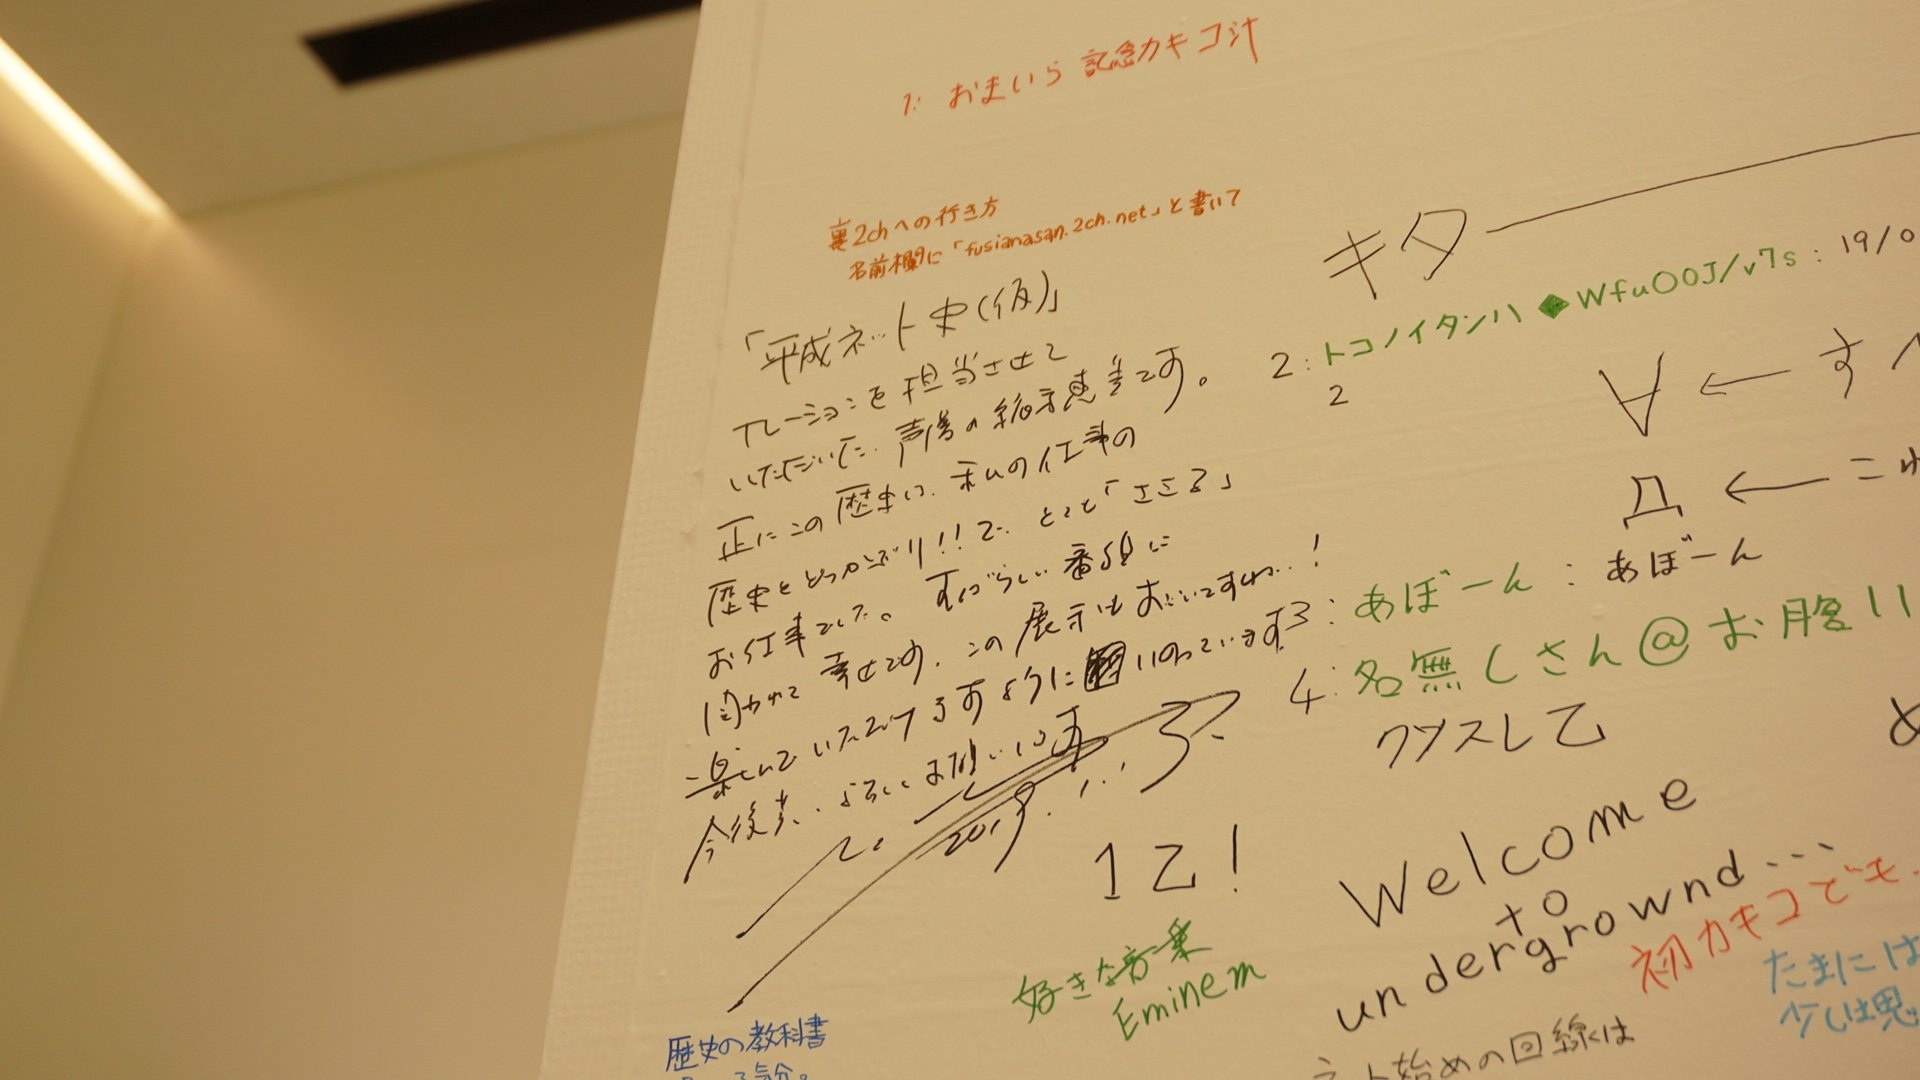 1: おまいら 記念カキコ汁
裏2chへの行き方
名前欄に「fusianasan.2ch.net」と書いて
「平成ネット史(仮)」
ナレーションを担当させて
いただいた、声優の緒方恵美です。
正にこの歴史は、私の仕事の
歴史とどっかぶり!!で、とても「ささる」
お仕事でした。すばらしい番組に
関われて幸せです。この展示も
楽しんでいただけますように いのっています
今後共、よろしくお願いします
2019.
キター
2: トコノイタンハ◆WfuOOJ/v7s : 19/0
2
∀ ← す
Д ← これ
3: あぼーん : あぼーん
4: 名無しさん@お腹い
クソスレ乙
1乙!
Welcome
to
undergrownd...
初カキコども
好きな音楽
Eminem
たまには
少しは思
歴史の教科書
ネト始めの回線は